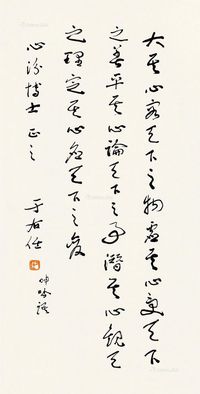 大其心容天下之物虛其心受天下
之善平其心論天下之事潛其心觀天
下之理定其心應天下之變
心汾博士 正之
于右任
呻吟語